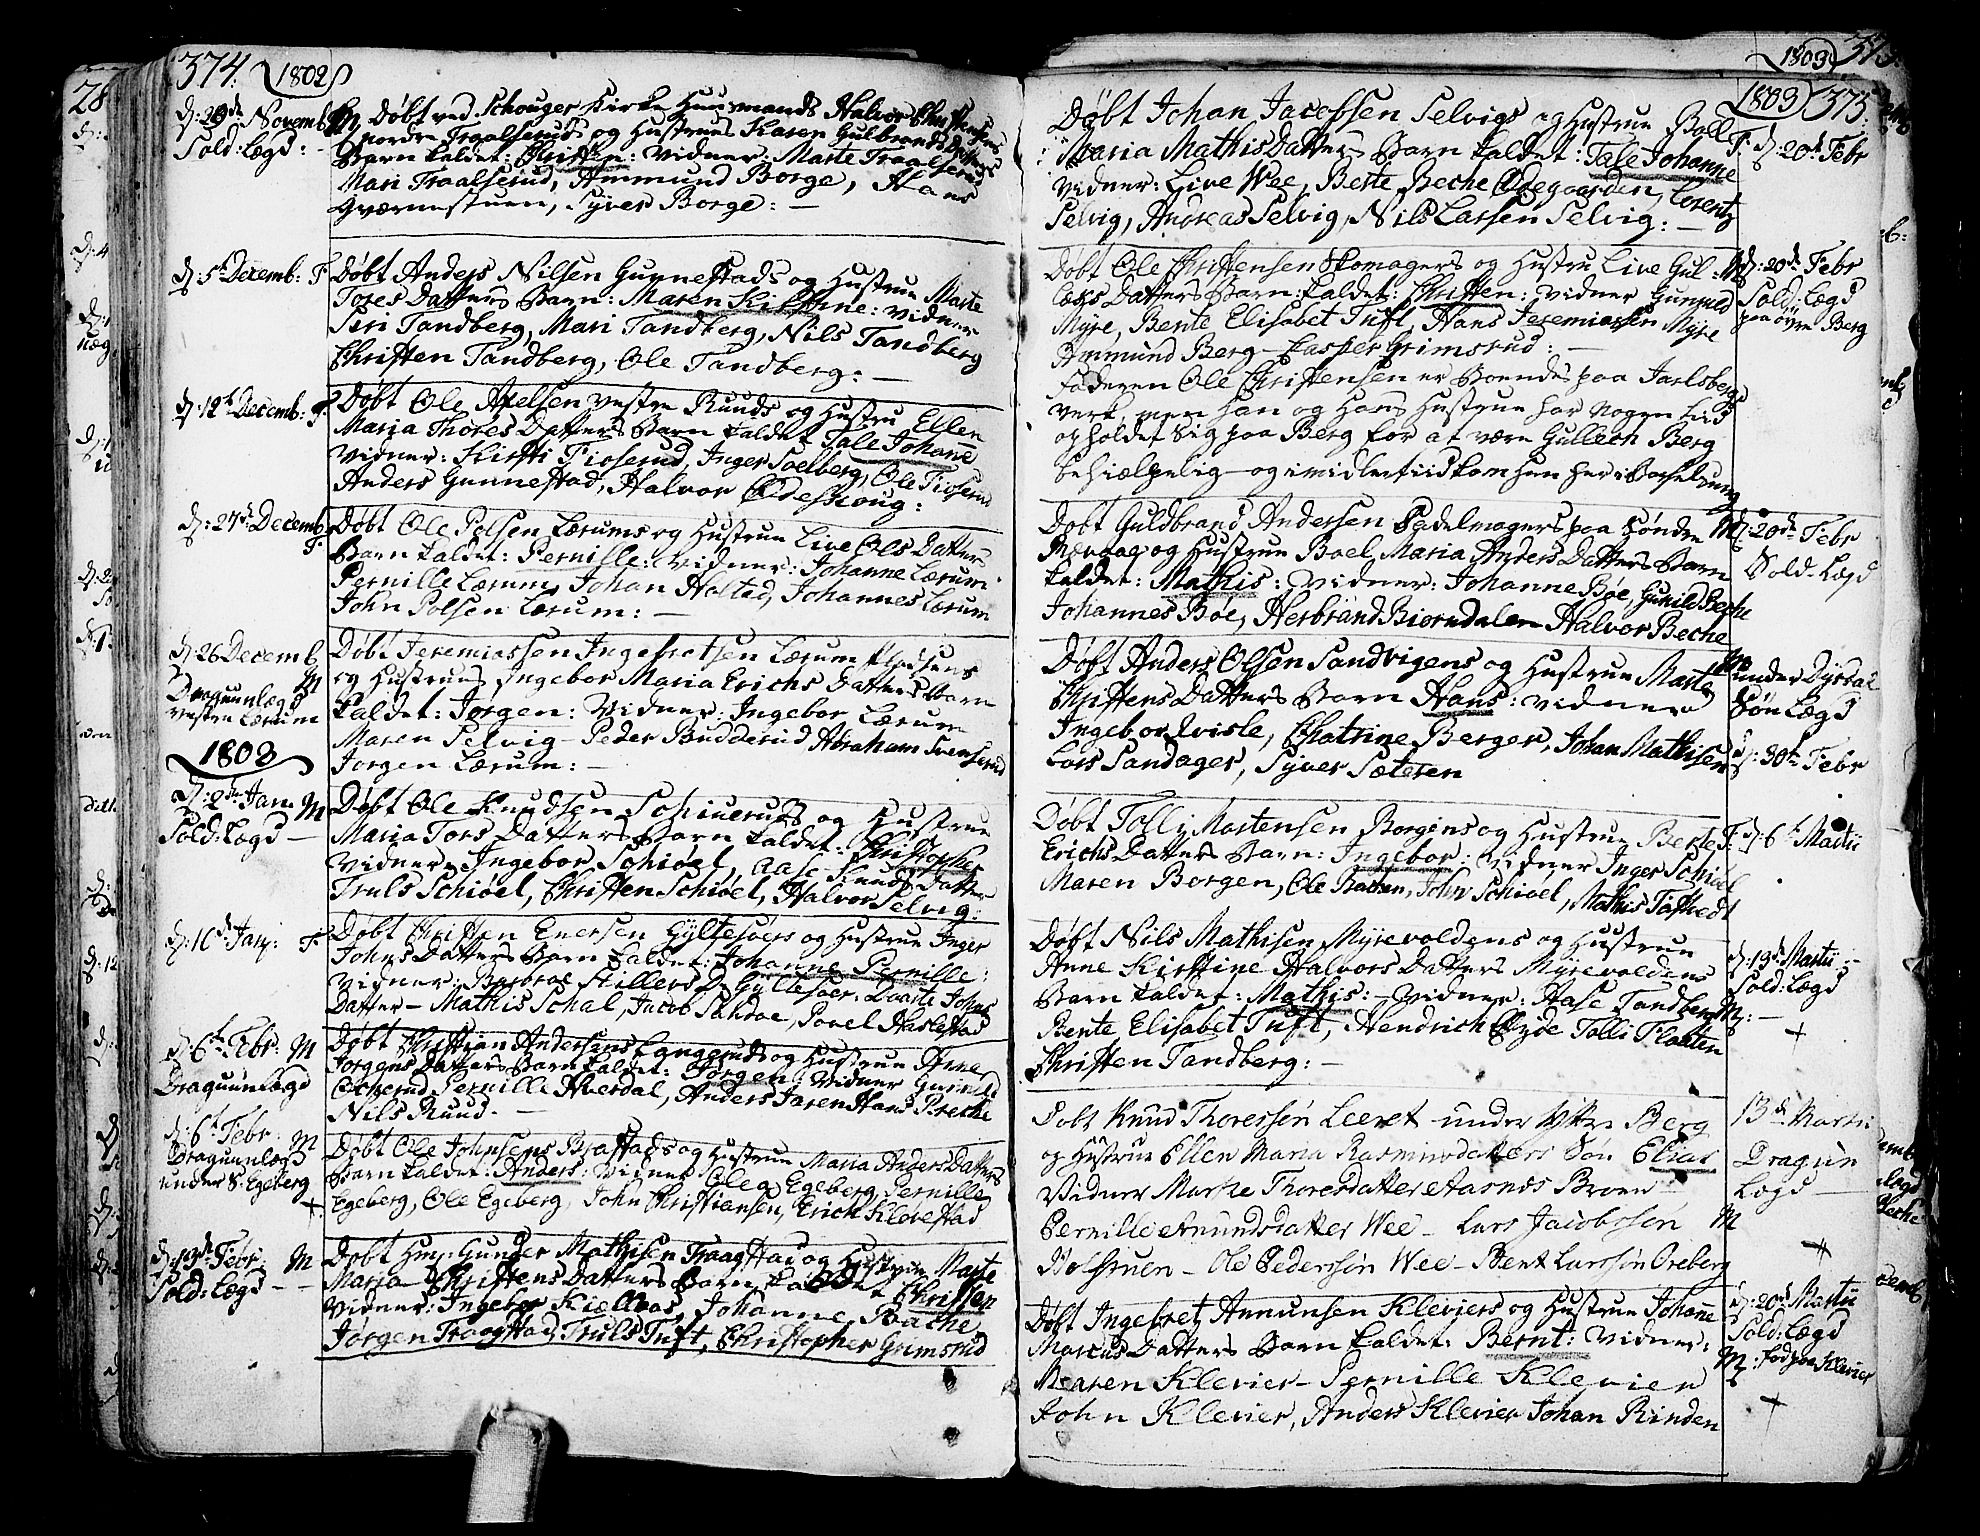 374. 1802
d: 29de Novemb: M
Sold: Lægd: -
Døbt ved Schouger Kirke Huusmands Halvor Christensens
nordre Traalserud og Hustrues Karen Gulbrands Datters
Barn kaldet: Christen: Vidner: Marte Traalserud
Mari Traalserud, Ammund Borge, Hans
Qværnestuen, Syver Borge: -
d: 5te Decemb: F.
Døbt Anders Nilsen Gunnestads og Hustrue Marte
Tores Datters Barn: Maren Kirstine: Vidner
Siri Tandberg, Mari Tandberg, Nils Tandberg
Christen Tandberg, Ole Tandberg: -
d: 12te Decemb: F.
Døbt Ole Axelsen vestre Ruuds og Hustru Ellen
Maria Thores Datters Barn kaldet Tale Johane
Vidner: Kirsti Fioserud, Inger Soelberg, Ole Fioserud
Anders Gunnestad, Halvor Ødeskoug:
d: 27de Decemb:
F.
Døbt Ole Polsen Lærums og Hustrue Live Ols Datters
Barn kaldet: Pernille: Vidner: Johanne Lærum
Pernille Lærum, Johan Holstad, Johannes Lærum
John Polsen Lærum: -
d: 26 Decemb
M
Dragunlægd
vestre Lærum
Døbt Jeremiassen Ingebretsen Lærum
og Hustrues Ingebor Maria Erichs Datters Barn
kaldet: Jørgen: Vidner: Ingebor Lærum
Maren Selvig - Peder Budderud Abraham Svenserud
Jorgen Lærum: -
1803
d: 2den Jan: M
Sold: Lægd -
Døbt Ole Knudsen Schiueruds og Hustrue
Maria Tors Datters Barn kaldet: Christopher
Vidner: Ingebor Schiøel, Aase Knuds Datter
Truls Schiøel, Christen Schiøel, Halvor Selvig:
d: 16de Janj: F.
Døbt Christen Enersen Gyltesøers og Hustrue Inger
Johns Datters Barn kaldet: Johanne Pernille:
Vidner: Barbroe Gyltesøer, Dorte Johns
Datter - Mathis Schal, Jacob Sandae, Povel Haslestad
d: 6te Febr: M
Dragunlægd
Døbt Christian Andersens Langeruds og Hustrue Anne
Jorgens Datters Barn kaldet: Jørgen: Vidner Gunild
Echerud, Pernille Averdal, Anders Jaren Hans Breche
Nils Ruud. -
d: 6te Febr:
M
Dragunlægd
under S: Egeberg
+
Døbt Ole Johnsens Brastads og Hustrue Maria Anders Datters
Barn kaldet: Anders: Vidner Olea Egeberg, Pernille
Egeberg, Ole Egeberg, John Christiansen, Erich Kløvestad
d: 13de Febr: M
Sold: Lægd - -
Døbt Hmd: Gunder Mathisen Traagstad og Hustrue Marte
Maria Christens Datters Barn kaldet Christen
Vidner: Ingebor Kiølaas, Johanne Bache
Jørgen Traagstad, Truls Tuft, Christopher Grimsrud
1803 375.
Døbt Johan Jacobsen Selvigs og Hustrue Boel
Maria Mathis Datters Barn kaldet: Tale Johanne
Vidner: Live Wee, Berte Beche Ødegaarden, Lorentz
Selvig, Andreas Selvig, Nils Larsen Selvig: -
F. d: 20de Febr
Døbt Ole Christensen Skomagers og Hustru Live Gul-
lechs Datters Barn: kaldet: Christen: Vidner Gunnild
Myre, Bente Elisabet Tuft, Hans Jeremiassen Myre
Ammund Berg - Casper Grimsrud: -
Faderen Ole Christensen er Boende paa Jarlsbergs
Verk, men han og Hans Hustrue har nogen tiid
opholdet sig paa Berg for at være Gullech Berg
behiælpelig - og imidlertiid kom hun her i Barselseng
M d: 20de Febr
Sold: Lægd
paa øvre Berg
Døbt Guldbrand Andersen Sadelmagers paa Søndre
Rævaag og Hustrue Boel Maria Anders Datters Barn
kaldet: Mathis: Vidner: Johanne Bøe, Gunild Beche
Johannes Bøe, Herbrand Biørndalen Halvor Beche
M d: 20de Febr
Sold: Lægd
Døbt Anders Olsen Sandvigens og Hustrue Marte
Christens Datters Barn Hans: Vidner
Ingebor Qvisle, Chatrine Berger, Johan Mathisen
Lars Sandager, Syver Sæteren
M
under Dysdal
Søn Lægd
d: 30te Febr
Døbt Tolly Mortensen Borgens og Hustrue Berte
Erichs Datters Barn: Ingebor: Vidner Inger Schiøel
Maren Borgen, Ole Roden, John Schiøel, Mathis Toftvedt
F. d: 6te Martii
Døbt Nils Mathisen Myrevoldens og Hustrue
Anne Kirstine Halvors Datters Myrevoldens
Barn kaldet: Mathis: - Vidner: Aase Tandberg
Bente Elisabet Tuft, Hendrich Clyde Tolli Floeten
Christen Tandberg: -
d: 13de Martii -
Sold: Lægd
M: -
+
Døbt Knud Thoressøn Leeret under Yttre Berg
og Hustrue Ellen Maria Rasmusdatters Søn Elias
Vidner Marthe Thoresdatter Aasnæs Broen -
Pernille Amundsdatter Wee - Lars Jacobssøn
Holstuen - Ole Pederssøn Wee - Bent Larssøn Oreberg
13de Martii
Dragun
Lægd -
M
+
Døbt Ingebret Annunsen Kleviers og Hustrue Johanne
Marcus Datters Barn kaldet: Bernt: Vidner:
Maren Klevier - Pernille Klevier
John Klevier, Anders Klevier Johan Rinden
d: 20de Martii
Sold: Lægd
M: fød paa Klevier
+